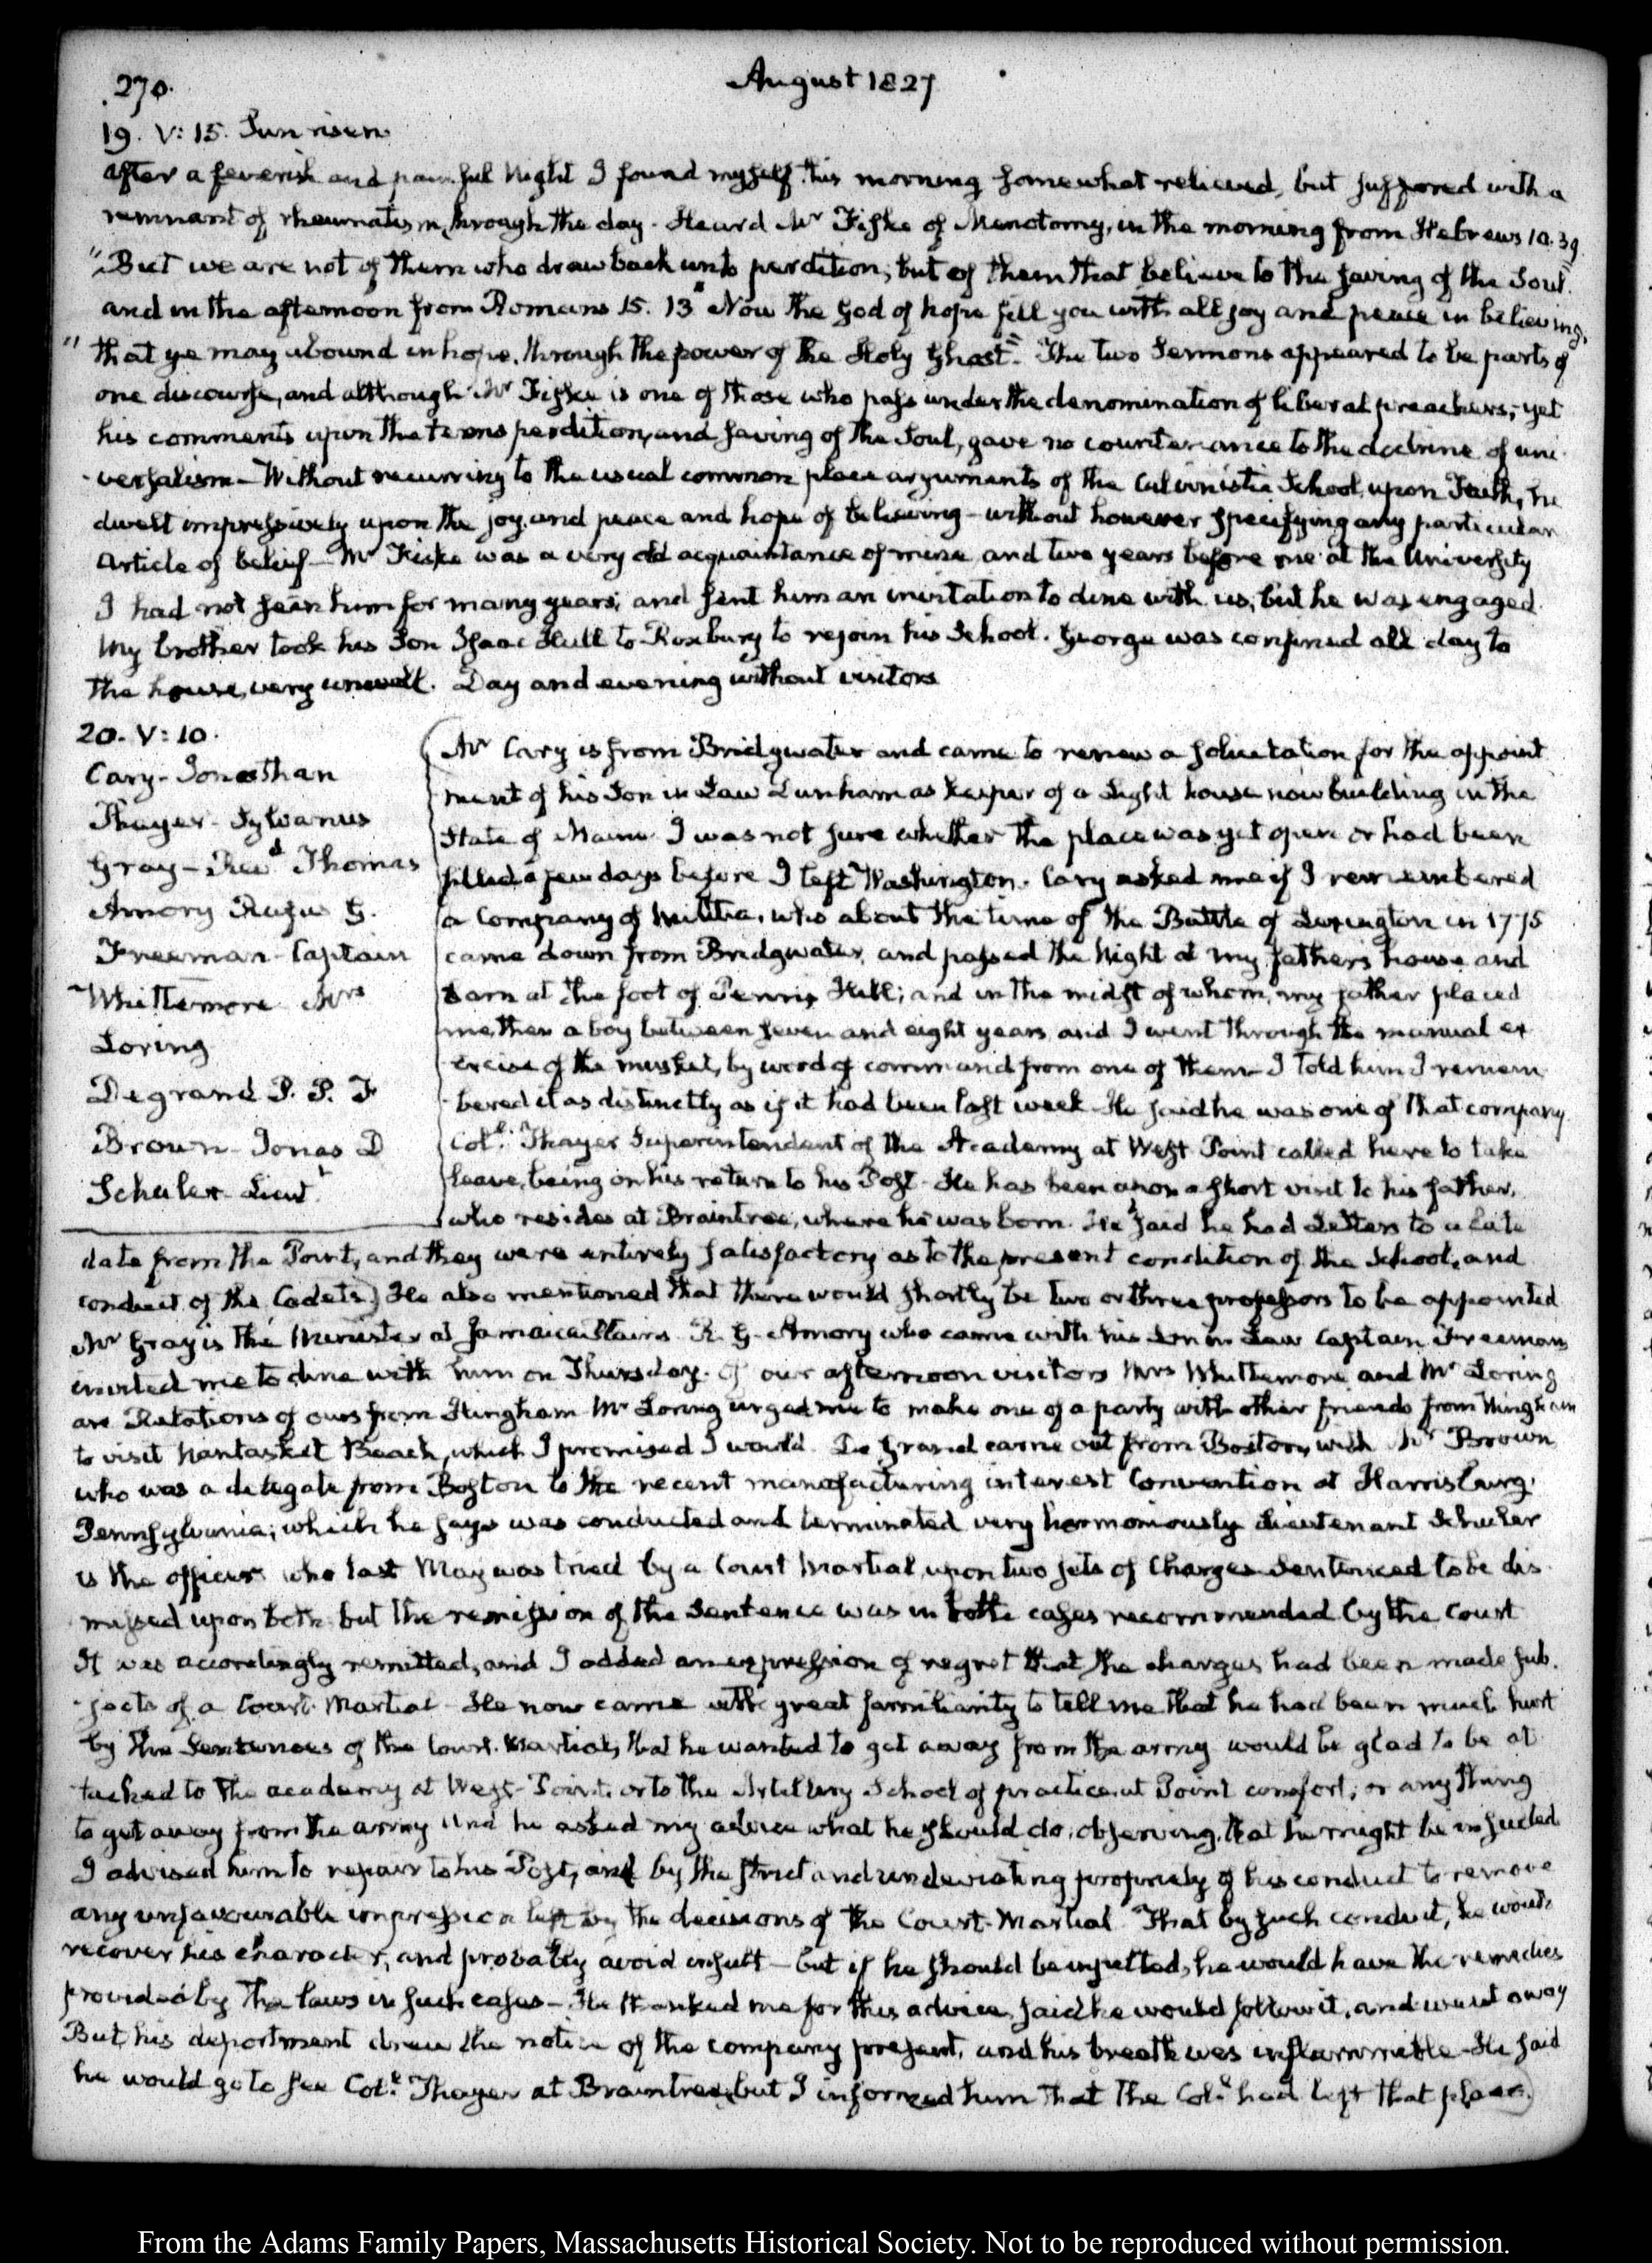 270.
August 1827
19. V: 15. Sun risen
After a feverish and painful Night I found myself this morning somewhat relieved, but suffered with a
remnant of rheumatism, through the day. Heard Mr Fiske of Menotomy, in the morning from Hebrews 10. 39
"But we are not of them who draw back unto perdition; but of them that believe to the saving of the Soul"
and in the afternoon from Romans 15. 13 "Now the God of hope fill you with all joy and peace in believing,
"that ye may abound in hope, through the power of the Holy Ghost." The two Sermons appeared to be parts of
one discourse, and although Mr Fiske is one of those who pass under the denomination of liberal preachers, yet
his comments upon the terms perdition, and saving of the Soul, gave no countenance to the doctrine of uni-
-versalism— Without recurring to the usual common place arguments of the Calvinistic School, upon Faith, he
dwelt impressively upon the joy, and peace and hope of believing— without however specifying any particular
Article of belief— Mr Fiske was a very old acquaintance of mine, and two years before me at the University
I had not seen him for many years; and sent him an invitation to dine with us, but he was engaged.
My brother took his Son Isaac Hull to Roxbury to rejoin his School. George was confined all day to
the house, very unwell. Day and evening without visitors
20. V: 10.
Cary- Jonathan
Thayer- Sylvanus
Gray- Revd Thomas
Amory Rufus G.
Freeman- Captain
Whittemore Mrs
Loring
Degrand P. P. F
Brown- Jonas B
Schuler- Lieutt
Mr Cary is from Bridgwater and came to renew a solicitation for the appoint
ment of his Son in Law Dunham as keeper of a Light house now building in the
State of Maine. I was not sure whether the place was yet open or had been
filled a few days before I left Washington. Cary asked me if I remembered
a Company of Militia, who about the time of the Battle of Lexington in 1775
came down from Bridgwater, and passed the Night at my father's house and
barn at the foot of Penn's Hill; and in the midst of whom, my father placed
me, then a boy between seven and eight years, and I went through the manual ex
-ercise of the musket, by word of command from one of them— I told him I remem
-bered it as distinctly as if it had been last week— He said he was one of that company
Coll. Thayer Superintendent of the Academy at West Point called here to take
leave, being on his return to his Post— He has been upon a short visit to his father,
who resides at Braintree, where he was born. He said he had Letters to a late
date from the Point, and they were entirely satisfactory as to the present condition of the School, and
conduct of the Cadets) He also mentioned that there would shortly be two or three professors to be appointed
Mr Gray is the Minister at Jamaica Plains. R. G. Amory who came with his Son in Law Captain Freeman
invited me to dine with him on Thursday. Of our afternoon visitors Mrs Whittemore and Mr Loring
are Relations of ours from Hingham. Mr Loring urged me to make one of a party with other friends from Hingham
to visit Nantasket Beach, which I promised I would. De Grand came out from Boston, with Mr Brown
who was a delegate from Boston to the recent manufacturing interest Convention at Harrisburg,
Pennsylvania; which he says was conducted and terminated very harmoniously Lieutenant Schuler
is the officer who last May was tried by a Court Martial, upon two sets of Charges Sentenced to be dis
missed upon both but the remission of the Sentence was in both cases recommended by the Court
It was accordingly remitted, and I added an expression of regret that the charges had been made sub.
-jects of a Court-Martial— He now came with great familiarity to tell me that he had been much hurt
by the Sentences of the Court-Martial, that he wanted to get away from the army would be glad to be at
-tached to the academy at West-Point, or to the Artillery School of practice at Point comfort; or any thing
to get away from the army and he asked my advice what he should do, observing, that he might be insulted
I advised him to repair to his Post, and by the strict and undeviating propriety of his conduct to remove
any unfavourable impression left by the decisions of the Court-Martial. That by such conduct, he would
recover his character, and probably avoid insult— but if he should be insulted, he would have the remedies
provided by the laws in such cases— He thanked me for this advice, said he would follow it, and went away
But his deportment drew the notice of the company present, and his breath was inflammable— He said
he would go to see Coll. Thayer at Braintree, but I informed him that the Coll. had left that place.)
From the Adams Family Papers, Massachusetts Historical Society. Not to be reproduced without permission.